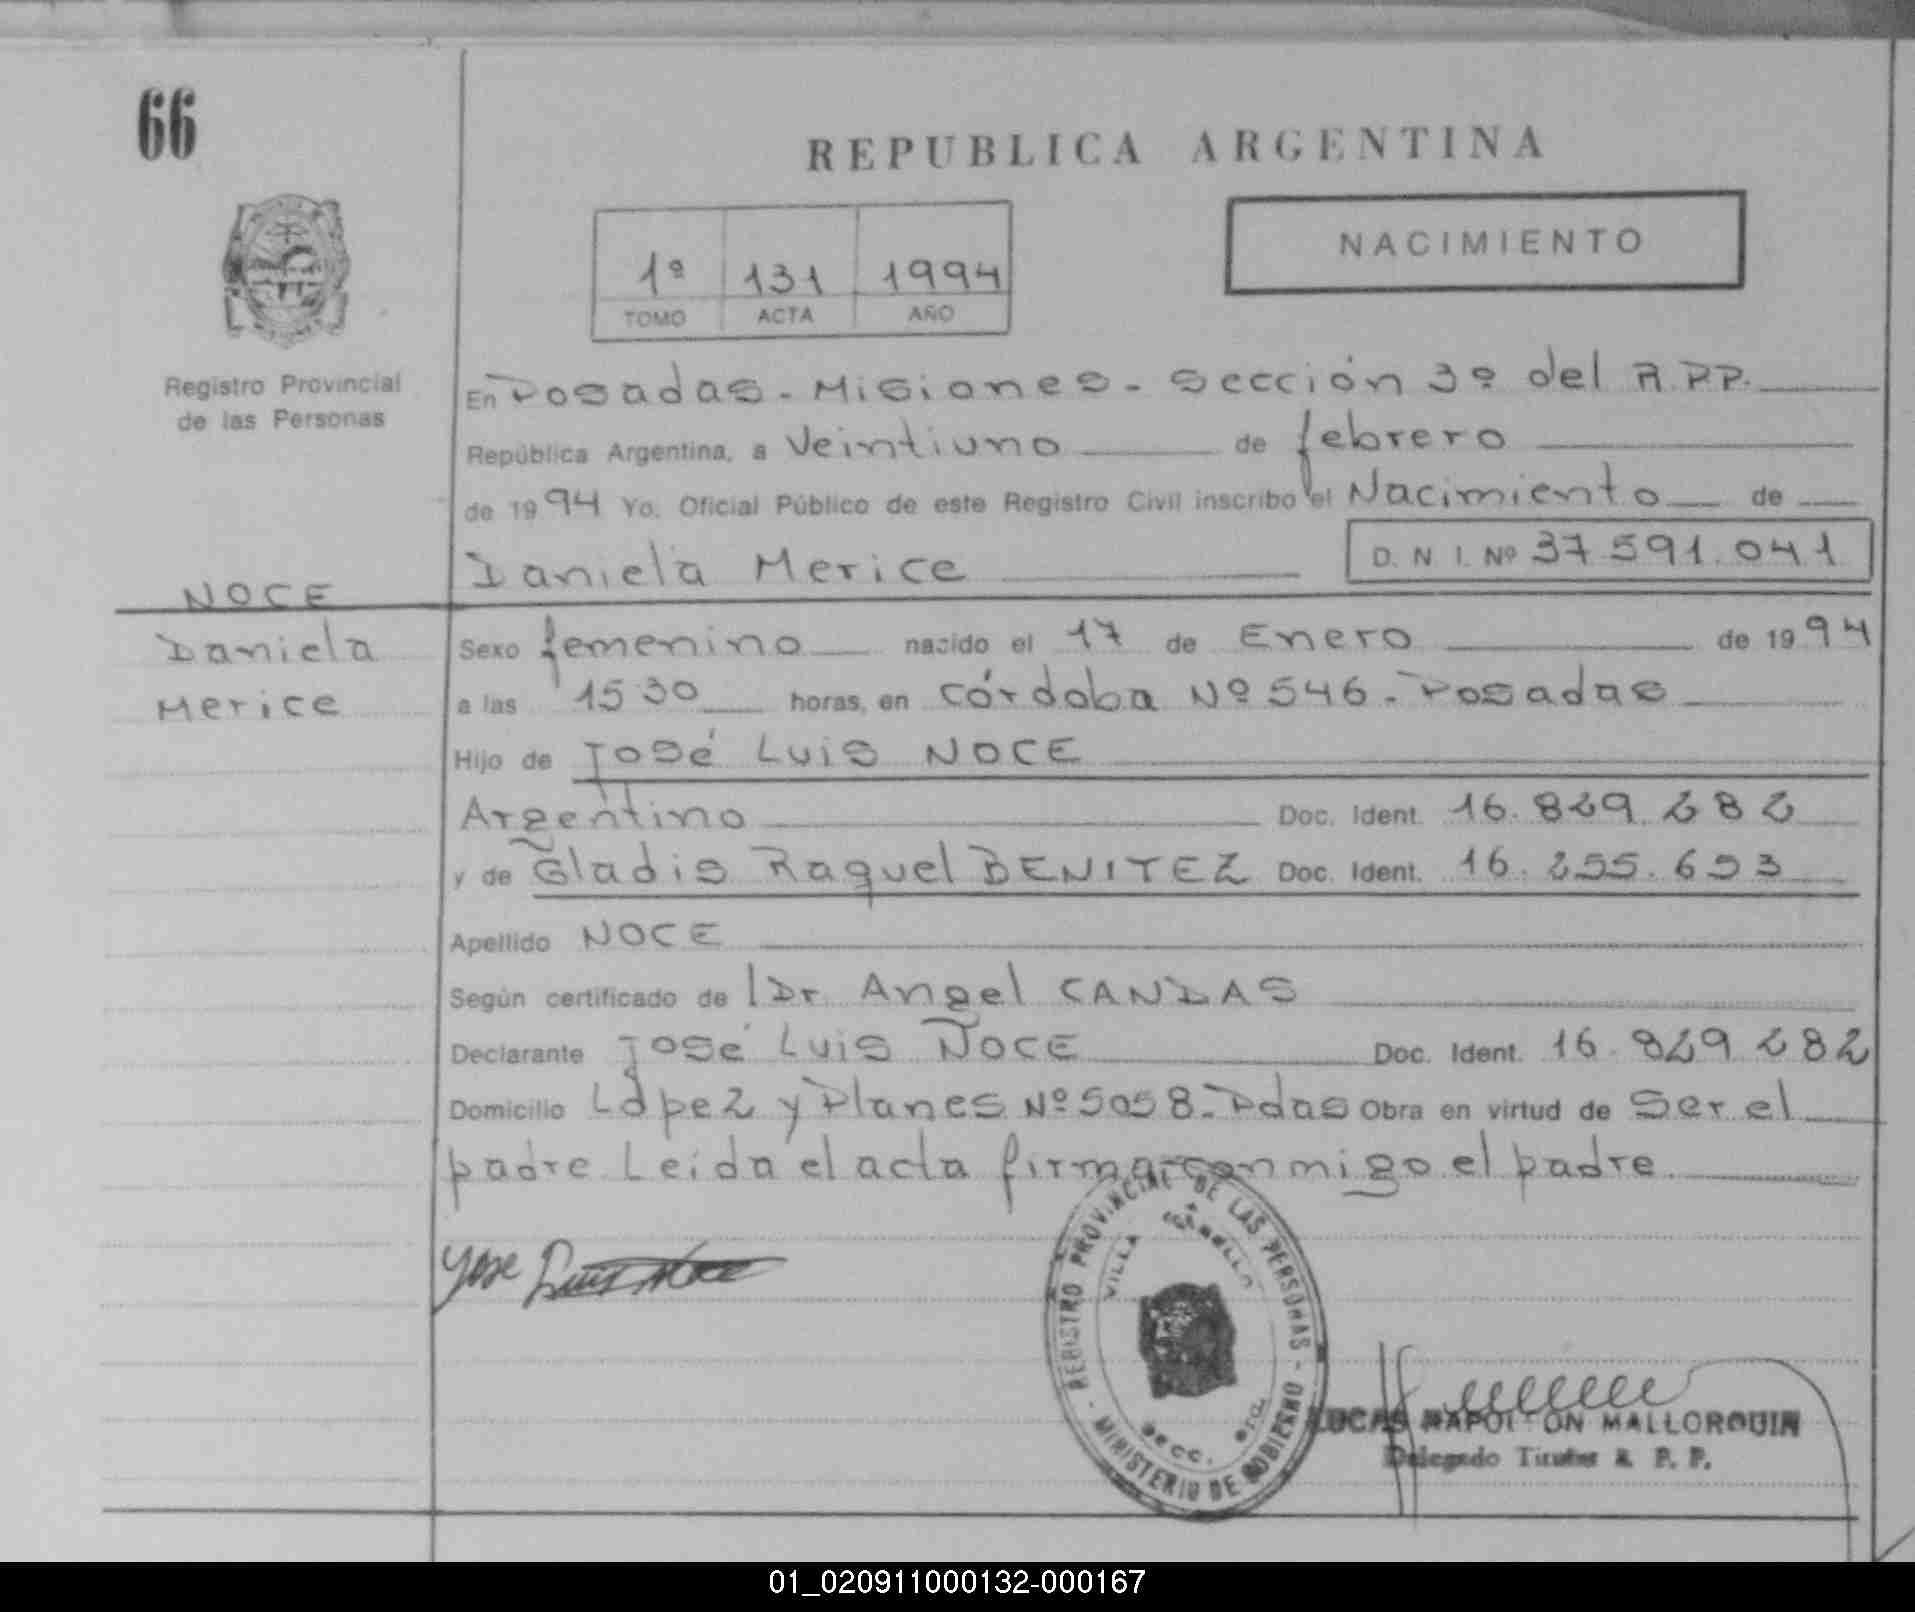 66
REPUBLICA ARGENTINA
1º 131 1994
TOMO ACTA AÑO
NACIMIENTO
Registro Provincial
de las Personas
En Posadas - Misiones - Sección 3º del R.P.P.
República Argentina, a Veintiuno de febrero
de 1994 Yo, Oficial Público de este Registro Civil inscribo el Nacimiento de
Daniela Merice D. N. I. Nº 37 591. 041
NOCE
Daniela
Merice
Sexo femenino nacido el 17 de Enero de 1994
a las 15 30 horas, en Córdoba Nº 546 - Posadas
Hijo de José Luis NOCE
Argentino Doc. Ident. 16. 829. 282
y de Gladis Raquel BENITEZ Doc. Ident. 16. 255. 653
Apellido NOCE
Según certificado de l Dr Angel CANDAS
Declarante José Luis NOCE Doc. Ident. 16. 829 282
Domicilio López y Planes Nº 5058 - Pdas Obra en virtud de Ser el
padre Leida el acta firma conmigo el padre
Jose Luis Noce
REGISTRO PROVINCIAL DE LAS PERSONAS - MINISTERIO DE GOBIERNO -
VILLA CABELLO
SECC. 3ra.
LUCAS NAPOLEON MALLORQUIN
Delegado Titular R. P. P.
01_020911000132-000167